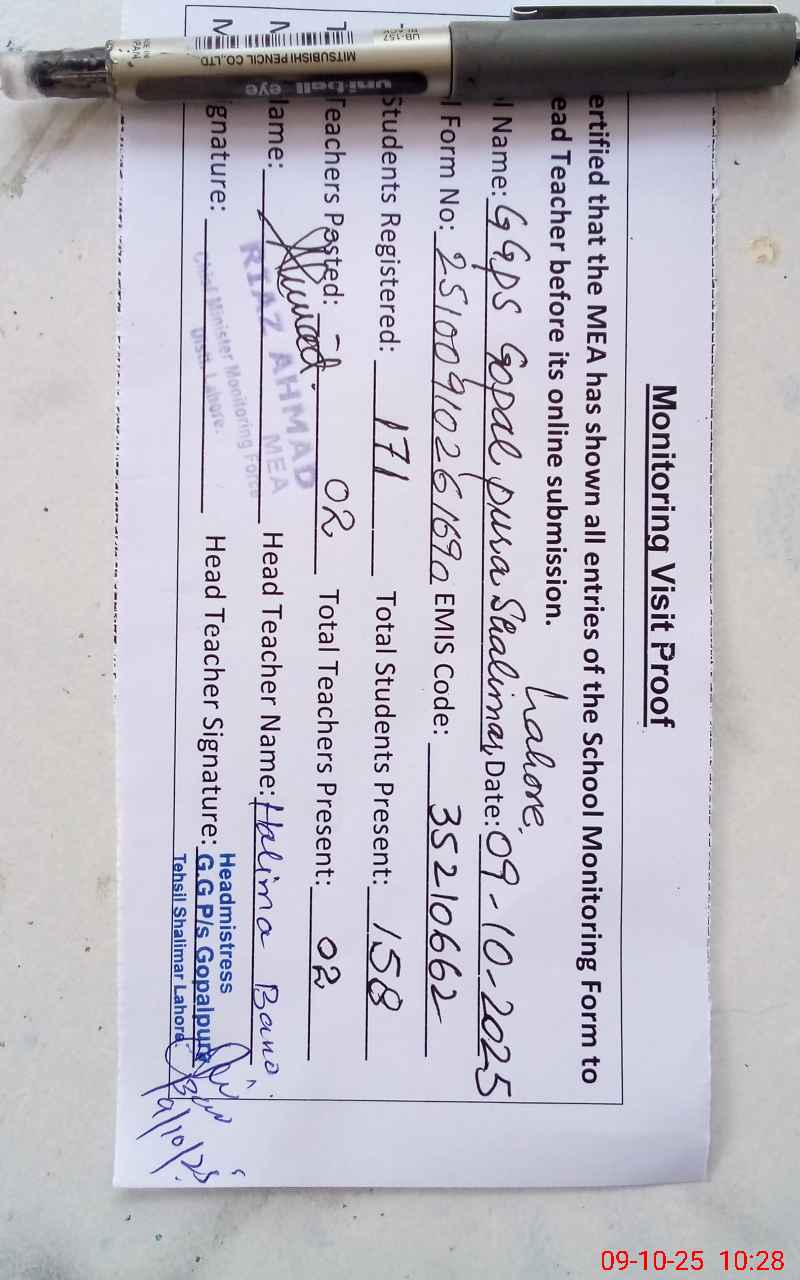 Monitoring Visit Proof
ertified that the MEA has shown all entries of the School Monitoring Form to
ead Teacher before its online submission.
l Name: GGPS Gopal pura Shalimar, Lahore. Date: 09-10-2025
l Form No: 251009102616 EMIS Code: 35210662
Students Registered: 171 Total Students Present: 158
Teachers Posted: 02 Total Teachers Present: 02
lame: Head Teacher Name: Halima Bano.
ignature: Head Teacher Signature:
RIAZ AHMAD
MEA
Chief Minister Monitoring Force
Distt. Lahore.
Headmistress
G.G P/s Gopalpura
Tehsil Shalimar Lahore
9/10/25
uni-ball eye
MITSUBISHI PENCIL CO.LTD
UB-157
09-10-25 10:28